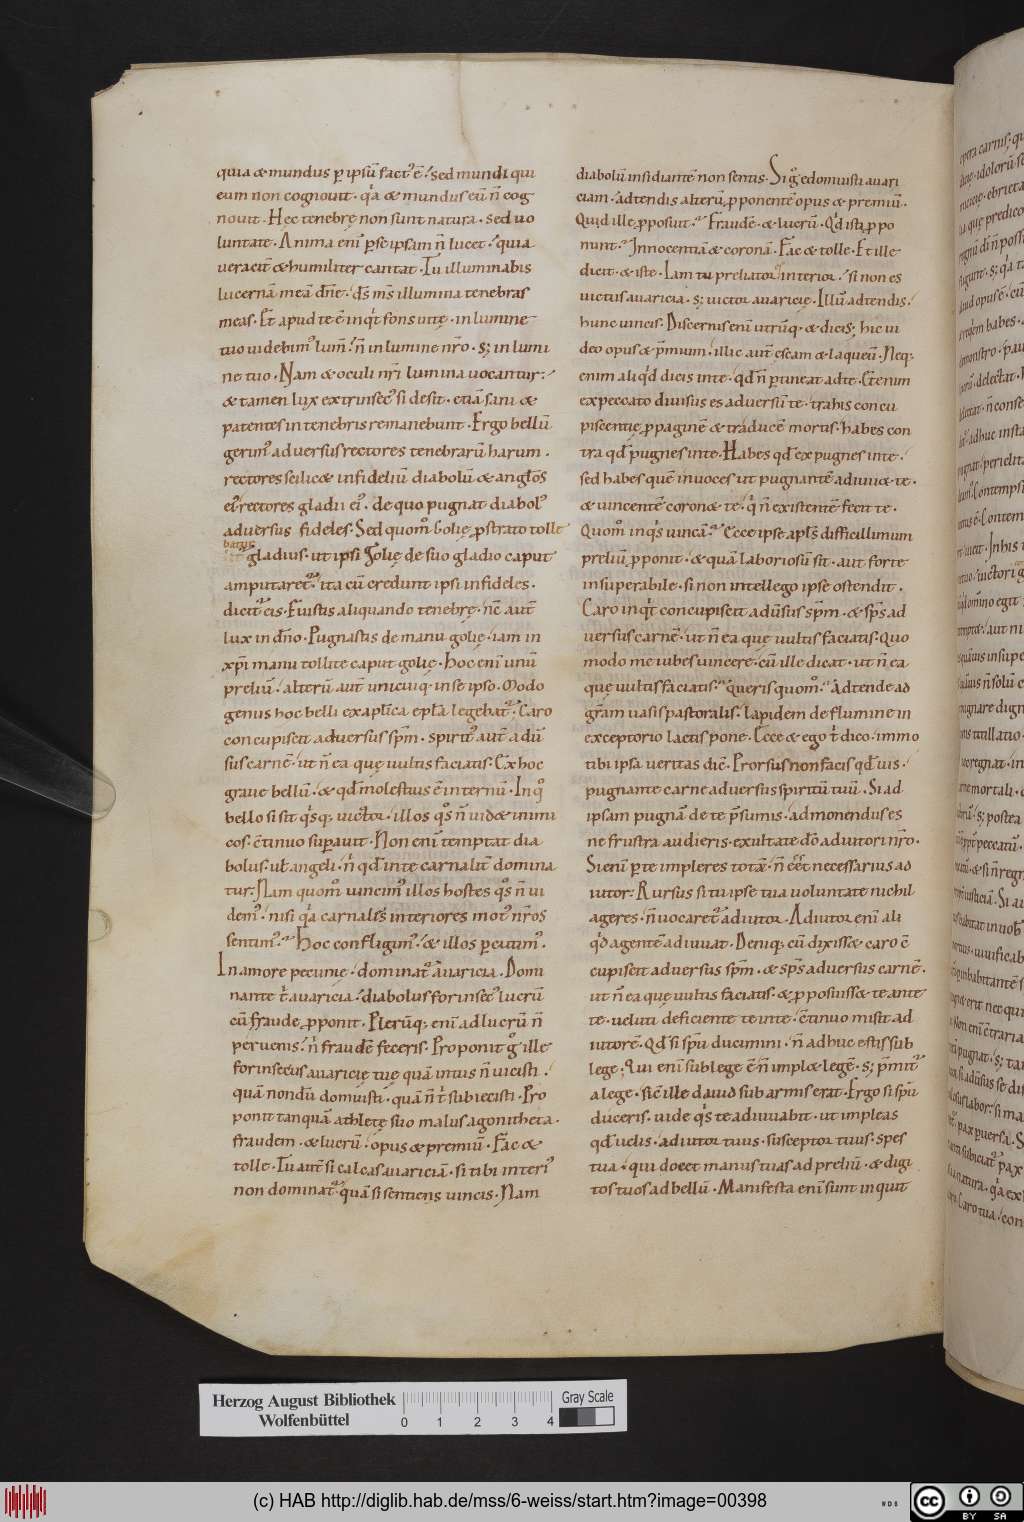 quia & mundus p ipsū fact' ē. sed mundi qui
eum non cognouit. q'a & mundus eū n̄ cog
nouit. Hęc tenebrę non sunt natura. sed uo
luntate. Anima eni p se ipsam n̄ lucet. quia
ueracit & humiliter cantat. Tu illuminabis
lucernā meā dn̄e. ds̄ ms̄ illumina tenebras
meas. Et apud te ē inq't fons uitę. in lumine
tuo uidebim' lum̄. n̄ in lumine nr̄o. s; in lumi
ne tuo. Nam & oculi nr̄i lumina uocantur.
& tamen lux extrinsec' si desit. etiā sani &
patentes in tenebris remanebunt. Ergo bellū
gerim' aduersus rectores tenebrarū harum.
rectores scilic& infideliū diabolū & angłos
ei' rectores gladii ei'. de quo pugnat diabol'
aduersus fideles. Sed quom° golię pstrato tolle
batur gladius. ut ipsi Golię de suo gladio caput
amputaret'. ita cū credunt ipsi infideles.
dicit' eis. Fuistis aliquando tenebrę. nc̄ aut̄
lux in dn̄o. Pugnastis de manu golię. iam in
xp̄i manu tollite caput golię. Hoc eni unū
preliū. alterū aut̄ unicuiq. in se ipso. Modo
genus hoc belli ex aplica epła legebat'. Caro
concupiscit aduersus sp̄m. spirit' aut̄ adū
sus carnē. ut n̄ ea quę uultis faciatis. Ex hoc
graue bellū. & qd molestius ē internū. In q°
bello si sit q's q; uictor. illos q°s n̄ uid& inimi
cos. c̄tinuo supauit. Non eni temptat dia
bolus. uł angeli. n' qd in te carnalit̄ domina
tur. Nam quom° uincim' illos hostes q°s n̄ ui
dem'. nisi q'a carnales interiores mot' nr̄os
sentim'. Hoc confligim'. & illos pcutim'.
In amore pecunie. dominat' auaricia. Domi
nante t̄ auaricia. diabolus forinsec' lucrū
cū fraude pponit. Plerūq; eni ad lucrū n̄
peruenis. n' fraudē feceris. Proponit g° ille
forinsecus auaricię tuę quā intus n̄ uicisti.
quā nondū domuisti. quā n̄ t̄ subiecisti. Pro
ponit tanquā athletę suo malus agonitheta.
fraudem. & lucrū. opus & premiū. Fac &
tolle. Tu aut̄ si calcas auariciā. si tibi interi'
non dominat' quā si sentiens uincis. Nam
diabolū insidiantē non sentis. Si g° edomuisti auari
ciam. adtendis alterū pponentē opus & premiū.
Quid ille pposuit. Fraudē. & lucrū. Qd ista ppo
nunt. Innocentiā & coronā. Fac & tolle. Et ille
dicit. & iste. Iam tu preliator interior. si non es
uictus auaricia. s; uictor auaricię. Illū adtendis.
hunc uincis. Discernis eni utrūq. & dicis; hic ui
deo opus & p̄mium. illic aut̄ escam & laqueū. Neq;
enim aliq'd dicis in te. qd n̄ ptineat ad te. Etenim
ex peccato diuisus es aduersū te. trahis concu
piscentię ppaginē & traducē mortis. habes con
tra qd pugnes in te. Habes qd expugnes in te.
sed habes quē inuoces ut pugnantē adiuu& te.
& uincentē coron& te. q' n̄ existentē fecit te.
Quom° inq's uincā. Ecce ipse apłs difficillimum
preliū pponit. & quā laboriosū sit. aut forte
insuperabile. si non intellego ipse ostendit.
Caro inq't concupiscit adūsus sp̄m. & sp̄s ad
uersus carnē. ut n̄ ea quę uultis faciatis. Quo
modo me iubes uincere. cū ille dicat. ut n̄ ea
que uultis faciatis. Queris quom°. Adtende ad
gr̄am uasis pastoralis. lapidem de flumine in
exceptorio lactis pone. Ecce & ego t̄ dico. immo
tibi ipsa ueritas dic̄. Prorsus non facis qd uis.
pugnante carne aduersus spiritū tuū. Si ad
ipsam pugnā de te p̄sumis. admonendus es
ne frustra audieris. exultate dō adiutori nr̄o.
Si eni p te impleres totā. n̄ eēt necessarius ad
iutor. Rursus si tu ipse tua uoluntate nichil
ageres. n̄ uocaret' adiutor. Adiutor eni ali
q'd agentē adiuuat. Deniq; cū dixiss& caro c̄
cupiscit aduersus sp̄m. & sp̄s aduersus carnē.
ut n̄ ea quę uultis faciatis. & pposuiss& te ante
te. ueluti deficiente te in te. c̄tinuo misit ad
iutorē. Qd si sp̄u ducimini. n̄ adhuc estis sub
lege. Qui eni sub lege ē n̄ impl& legē. s; p̄mit'
a lege. sic̄ ille dauid sub armis erat. Ergo si sp̄u
duceris. uide q's te adiuuabit. ut impleas
qd uelis. adiutor tuus. susceptor tuus. spes
tua. qui docet manus tuas ad preliū. & digi
tos tuos ad bellū. Manifesta eni sunt inquit
Herzog August Bibliothek
Wolfenbüttel
0 1 2 3 4
Gray Scale
(c) HAB http://diglib.hab.de/mss/6-weiss/start.htm?image=00398
WDB
cc
BY SA